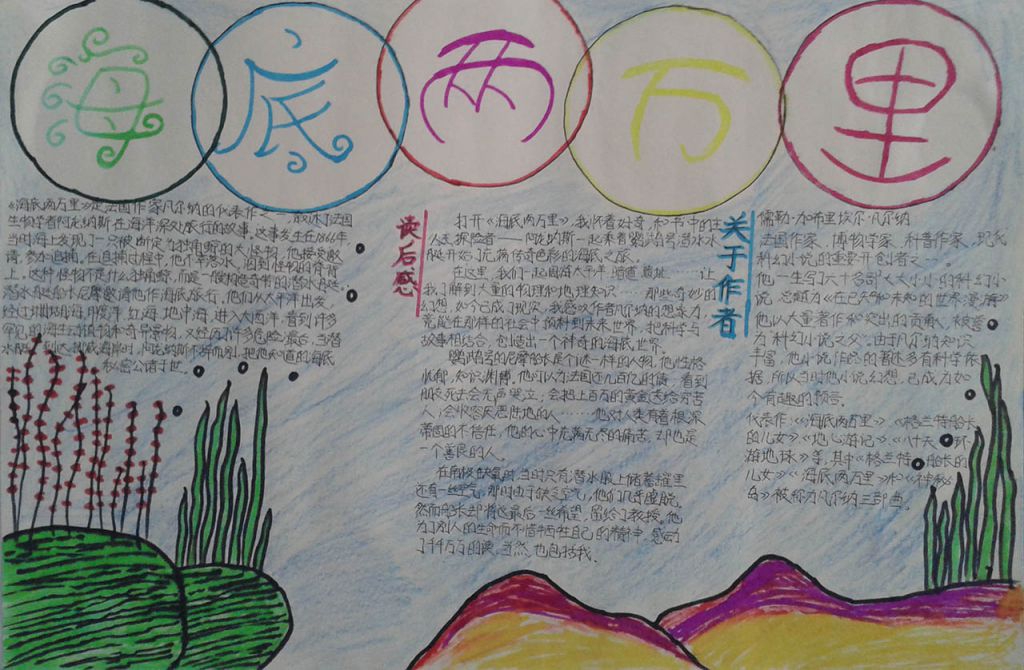 海底两万里
《海底两万里》是法国作家凡尔纳的代表作之一,叙述了法国
生物学者阿龙纳斯在海洋深处旅行的故事,这事发生在1866年
当时海上发现了一只被断定为独角鲸的大怪物,他接受邀
请,参加追捕,在追捕过程中,他不幸落水,泅到怪物的脊背
上,这种怪物不是什么独角鲸,而是一艘构造奇特的潜水船。
潜水船船长尼摩邀请他作海底旅行,他们从太平洋出发,
经过珊瑚海,印度洋,红海,地中海,进入大西洋,看到许多
罕见的海生动植物和奇异景物,又经历许多危险,最后,当潜
水船到达挪威海岸时,阿龙纳斯不辞而别,把他知道的海底
秘密公诸于世。
读后感
打开《海底两万里》,我怀着好奇,和书中的主
人公探险者——阿龙纳斯一起乘着鹦鹉号潜水
艇开始了充满传奇色彩的海底之旅。
在这里,我们一起周游太平洋 让
我了解到大量的物理和地理知识……那些奇妙的
幻想,如今已成了现实,我感叹作者凡尔纳的想象力,
竟能在那样的社会中预料到未来世界,把科学与
故事相结合,创造出一个神奇的海底世界。
鹦鹉号的尼摩船长是个谜一样的人物,他性格
忧郁,知识渊博,他可以为法国还几百亿的债,看到
朋友死去会无声哭泣,会把上百万的黄金送给穷苦
人,会收容厌恶陆地的人……他对人类有着根深
蒂固的不信任,他的心中充满无尽的痛苦,却也是
一个善良的人。
在南极缺氧时,当时只有潜水服上储蓄罐里
还有一丝空气,那时由于缺乏空气,他们几乎虚脱,
然而船长却将这最后一丝希望,留给了教授,他
为了别人的生命而不惜牺牲自己的精神,感动
了千千万万的读 当然,也包括我。
关于作者
儒勒·加布里埃尔·凡尔纳
法国作家,博物学家,科普作家,现代
科幻小说的重要开创者之一。
他一生写了六十多部大大小小的科幻小
说,总题为《在已知和未知的世界漫游》
他以大量著作和突出的贡献,被誉
为"科幻小说之父"。由于凡尔纳知识
丰富,他小说作品的著述多有科学依
据,所以当时他小说幻想,已成为如
今有趣的预言。
代表作:《海底两万里》、《格兰特船长
的儿女》《地心游记》《八十天环
游地球》等,其中《格兰特船长的
儿女》《海底两万里》和《神秘
岛》被称为凡尔纳三部曲。